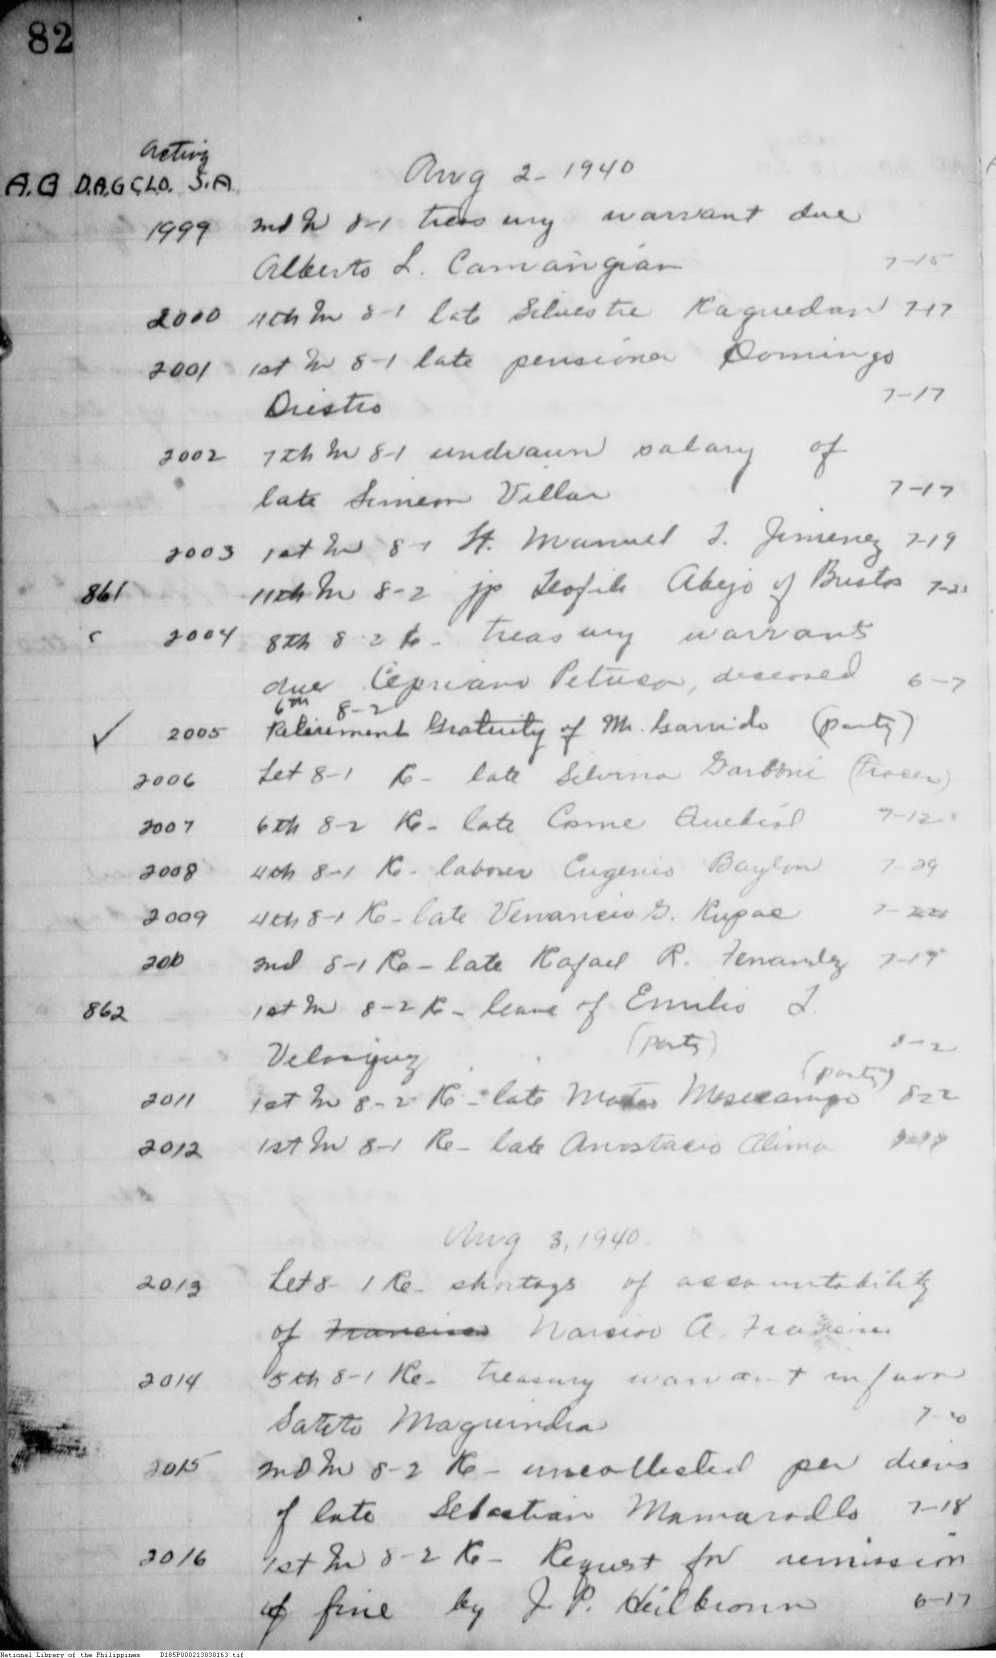 82
Acting
A.G D.A.G C.L.O. S.A.
Aug 2- 1940
1999 2nd In 8-1 treasury warrant due
Alberto L. Camangian 7-15
2000 4th In 8-1 late Silvestre Raguedan 7-17
2001 1st In 8-1 late pensioner Domingo
Diestro 7-17
2002 7th In 8-1 undrawn salary of
late Simeon Villar 7-17
2003 1st In 8-1 Lt. Manuel T. Jimenez 7-19
861 11th In 8-2 jp Teofilo Abejo of Bustos
2004 8th 8-2 Re- treasury warrant
due Cipriano, deceased 6-7
6th 8-2
2005 Retirement Gratuity of Mr. Garrido (party)
2006 Let 8-1 Re- late Silvina
2007 6th 8-2 Re- late Cosme 7-12
2008 4th 8-1 Re- laborer Eugenio Baylon 7-29
2009 4th 8-1 Re- late Venancio G.
2010 2nd 8-1 Re- late Rafael R. Fernandez 7-19
862 1st In 8-2 Re- leave of Emilio T.
Velasquez (party) 8-2
(party)
2011 1st In 8-2 Re- late 8-2
2012 1st In 8-1 Re- late Anastacio Alima
Aug 3, 1940
2013 Let 8-1 Re- shortage of accountability
of Francisco Narciso A.
2014 5th 8-1 Re- treasury warrant in favor
Satoto Maguindra
2015 2nd In 8-2 Re- uncollected per diems
of late Sebastian 7-18
2016 1st In 8-2 Re- Request for remission
of fine by J. P. Heilbronn 6-17
National Library of the Philippines D185P000213030163.tif